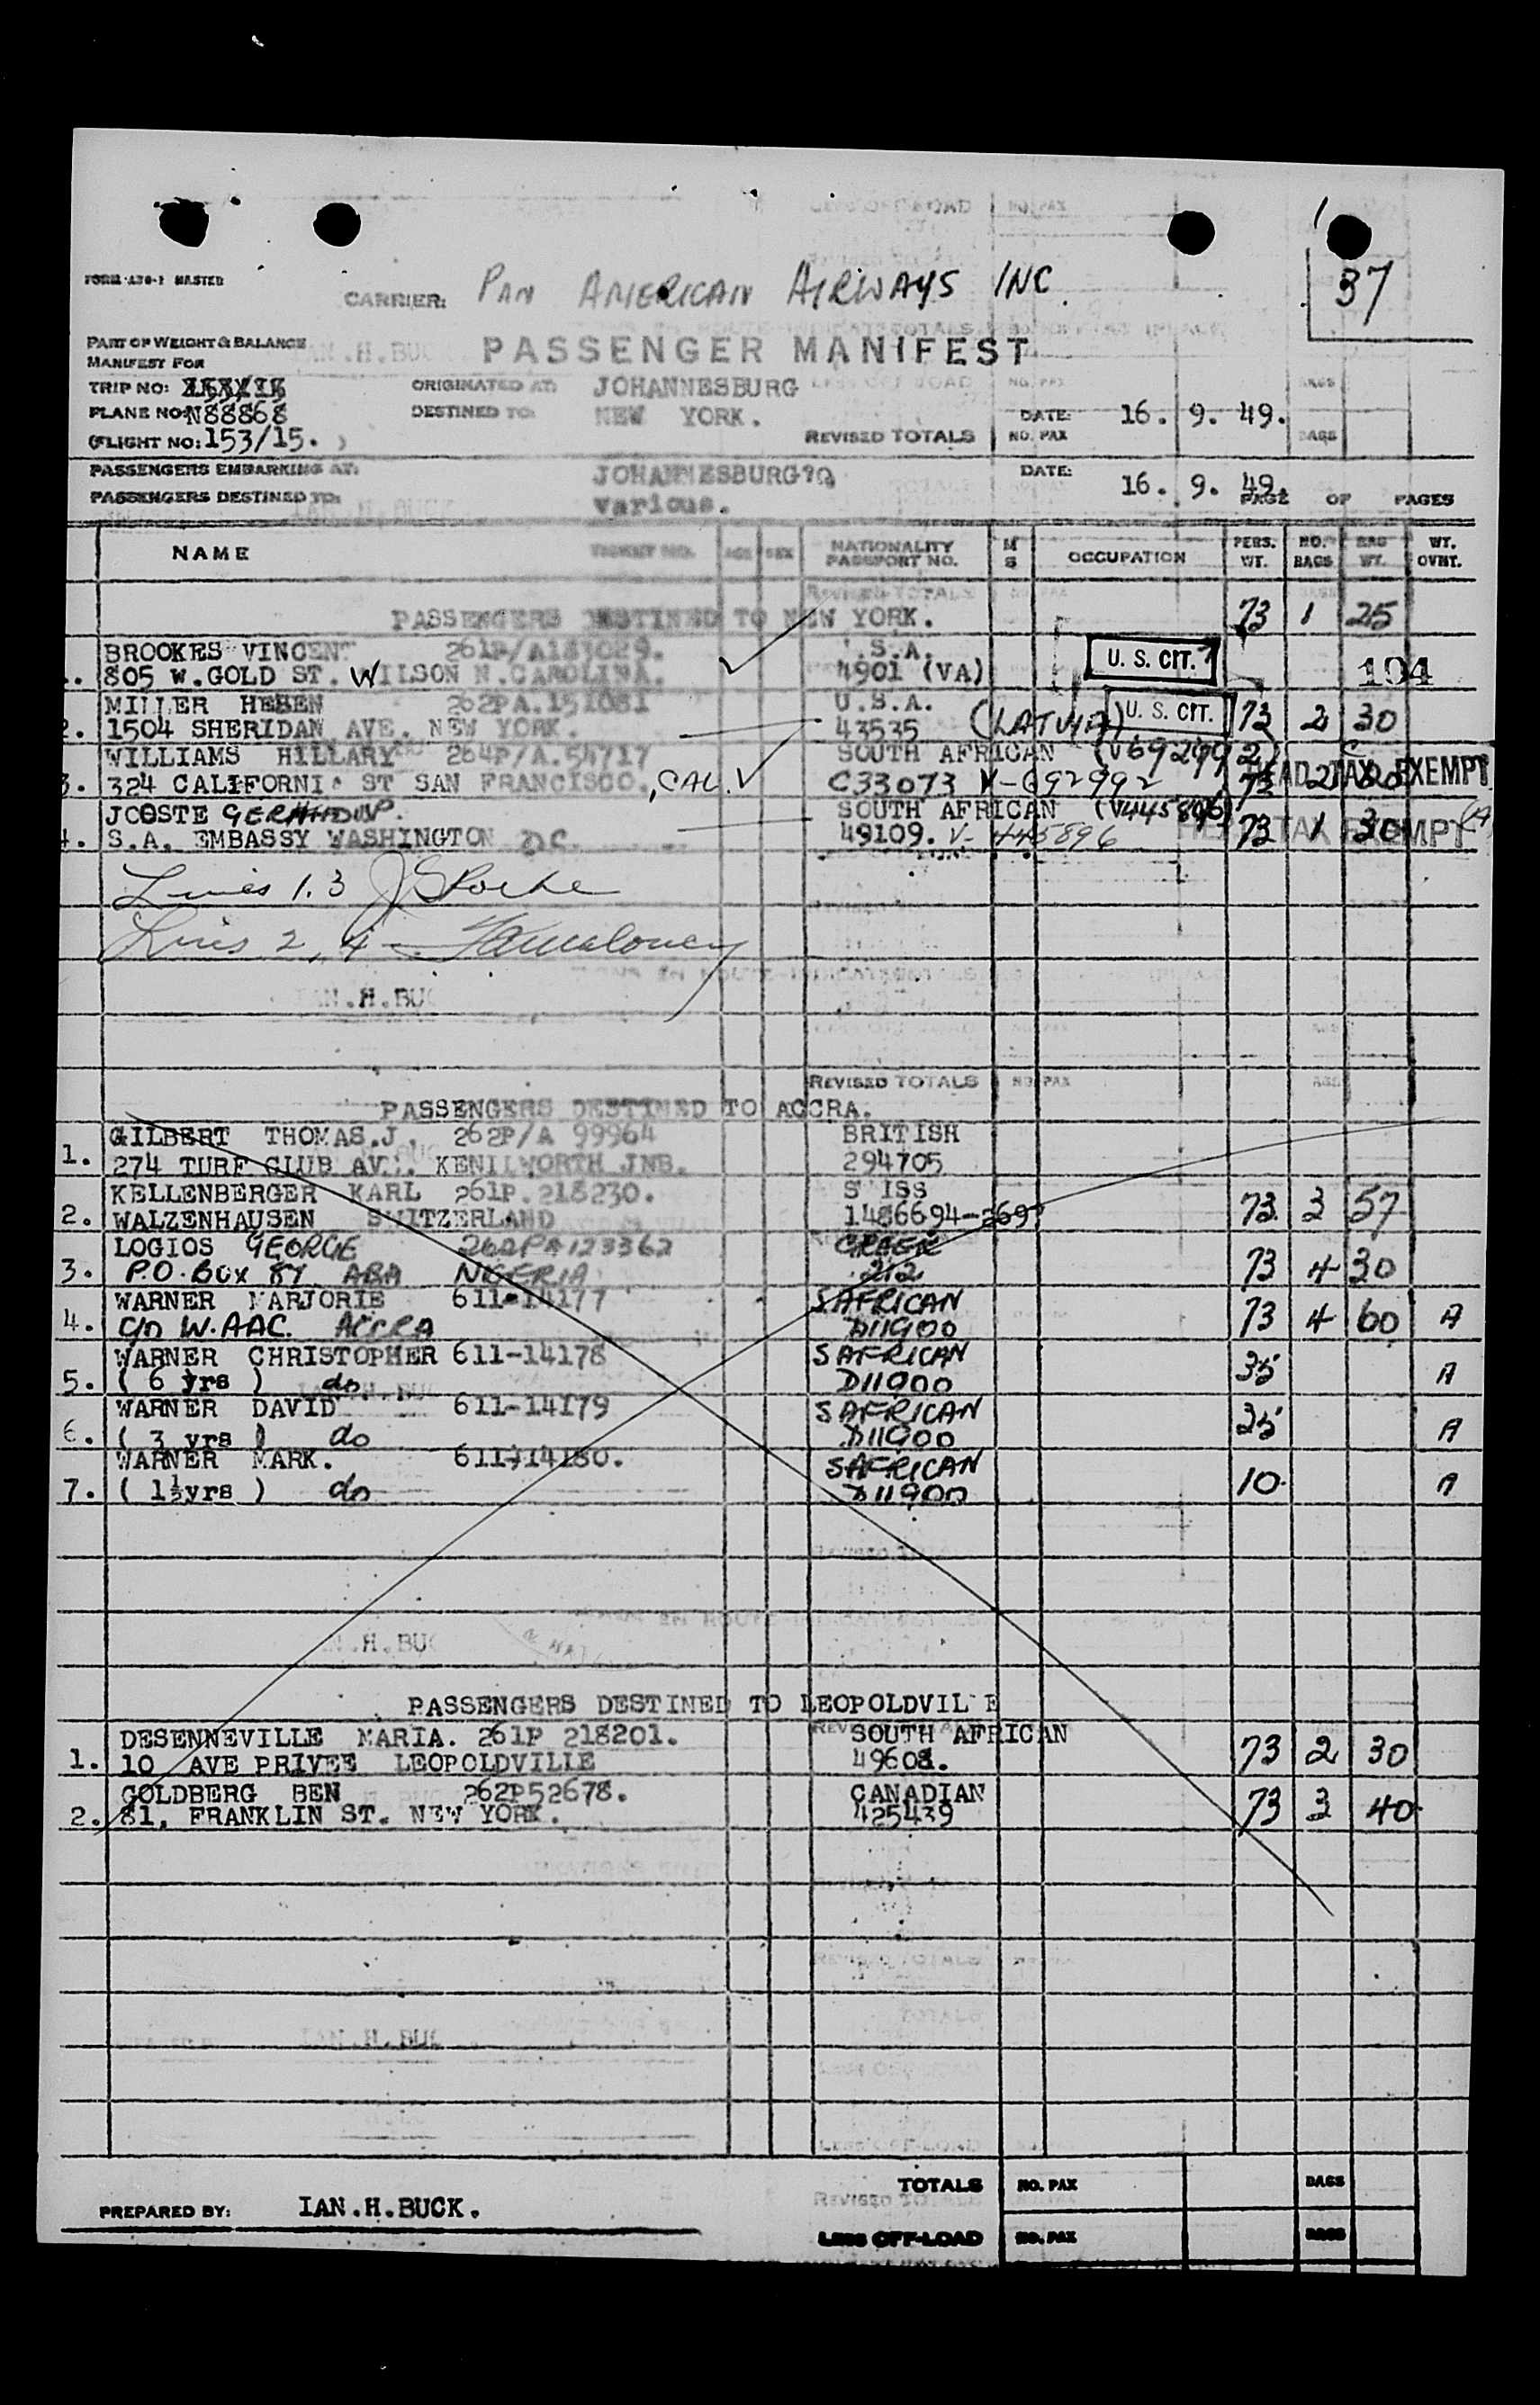 FORM-430-1 MASTER
CARRIER: PAN AMERICAN AIRWAYS INC.
37
PART OF WEIGHT & BALANCE
MANIFEST FOR
PASSENGER MANIFEST
TRIP NO:
ORIGINATED AT: JOHANNESBURG
PLANE NO: N88868
DESTINED TO: NEW YORK.
DATE: 16. 9. 49.
(FLIGHT NO: 153/15. )
REVISED TOTALS NO. PAX BAGS
PASSENGERS EMBARKING AT: JOHANNESBURG
DATE: 16. 9. 49.
PASSENGERS DESTINED TO: various.
PAGE OF PAGES
NAME TICKET NO. AGE SEX NATIONALITY PASSPORT NO. M S OCCUPATION PERS. WT. NO. BAGS BAG WT. WT. OVHT.
PASSENGERS DESTINED TO NEW YORK. 73 1 25
BROOKES VINCENT 261P/A183029. U.S.A. U. S. CIT.
805 W. GOLD ST. WILSON N. CAROLINA. 4901 (VA) 194
MILLER HESEN 262PA.151081 U.S.A.
2. 1504 SHERIDAN AVE. NEW YORK. 43535 (LATVIA) U. S. CIT. 73 2 30
WILLIAMS HILLARY 264P/A.54717 SOUTH AFRICAN (V692992)
3. 324 CALIFORNIA ST SAN FRANCISCO., CAL. C33073 V-692992 73 2 HEAD TAX EXEMPT
JOOSTE SOUTH AFRICAN (V445896)
4. S.A. EMBASSY WASHINGTON D.C. 49109. V-445896 73 1 30 HEAD TAX EXEMPT (A)
Lines 1.3
Lines 2, 4
REVISED TOTALS NO. PAX
PASSENGERS DESTINED TO ACCRA.
GILBERT THOMAS.J. 262P/A 99964 BRITISH
1. 274 TURF CLUB AV. KENILWORTH JNB. 294705
KELLENBERGER KARL 261P.218230. SWISS
2. WALZENHAUSEN SWITZERLAND 1486694-2697 73 3 57
LOGIOS GEORGE 262PA123362 GREEK
3. P.O. BOX 87 ABA NIGERIA 212 73 4 30
WARNER MARJORIE 611-14177 SAFRICAN
4. C/O W.AAC. ACCRA D11900 73 4 60 A
WARNER CHRISTOPHER 611-14178 SAFRICAN
5. ( 6 yrs ) do D11900 35 A
WARNER DAVID 611-14179 SAFRICAN
6. ( 3 yrs ) do D11900 25 A
WARNER MARK. 611-14180. SAFRICAN
7. ( 1½yrs ) do D11900 10 A
PASSENGERS DESTINED TO LEOPOLDVILLE
DESENNEVILLE MARIA. 261P 218201. SOUTH AFRICAN
1. 10 AVE PRIVEE LEOPOLDVILLE 49608. 73 2 30
GOLDBERG BEN 262P52678. CANADIAN
2. 81, FRANKLIN ST. NEW YORK. 425439 73 3 40
TOTALS NO. PAX BAGS
PREPARED BY: IAN.H.BUCK.
LESS OFF-LOAD NO. PAX BAGS